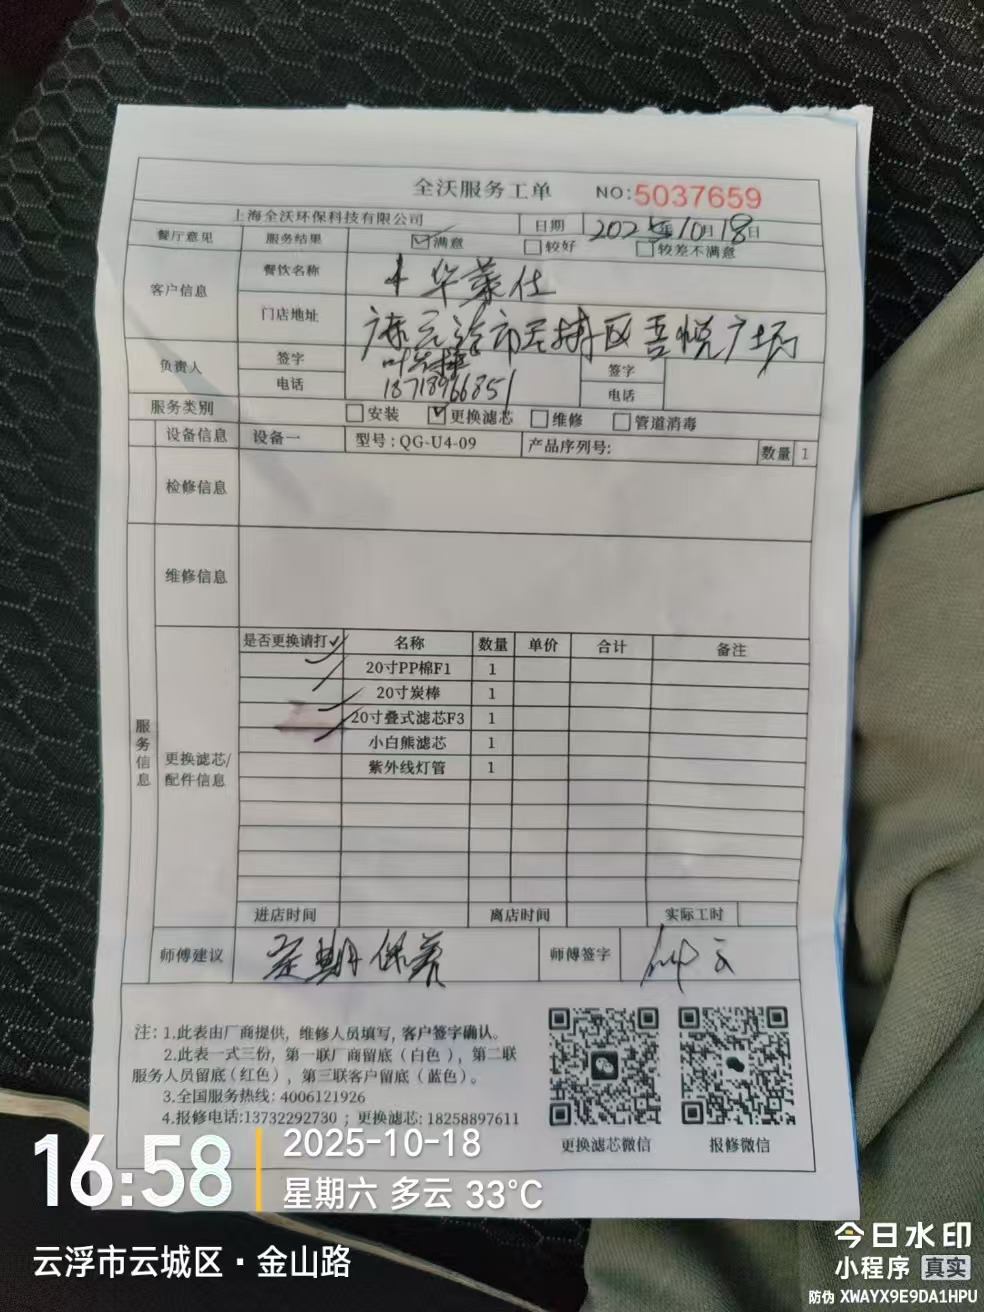 全沃服务工单 NO:5037659
上海全沃环保科技有限公司 日期 2025年10月18日
餐厅意见 服务结果 ☑满意 □较好 □较差不满意
客户信息 餐饮名称 华莱仕
门店地址 广东云浮市云城区吾悦广场
负责人 签字 签字
电话 18718966851 电话
服务类别 □安装 ☑更换滤芯 □维修 □管道消毒
设备信息 设备一 型号:QG-U4-09 产品序列号: 数量 1
检修信息
维修信息
服务信息
更换滤芯/配件信息
是否更换请打✓ 名称 数量 单价 合计 备注
✓ 20寸PP棉F1 1
20寸炭棒 1
✓ 20寸叠式滤芯F3 1
小白熊滤芯 1
紫外线灯管 1
进店时间 离店时间 实际工时
师傅建议 定期保养 师傅签字
注: 1.此表由厂商提供, 维修人员填写, 客户签字确认。
2.此表一式三份, 第一联厂商留底(白色), 第二联
服务人员留底(红色), 第三联客户留底(蓝色)。
3.全国服务热线: 4006121926
4.报修电话:13732292730 ; 更换滤芯: 18258897611
更换滤芯微信 报修微信
16:58 2025-10-18
星期六 多云 33°C
云浮市云城区·金山路
今日水印
小程序 真实
防伪 XWAYX9E9DA1HPU